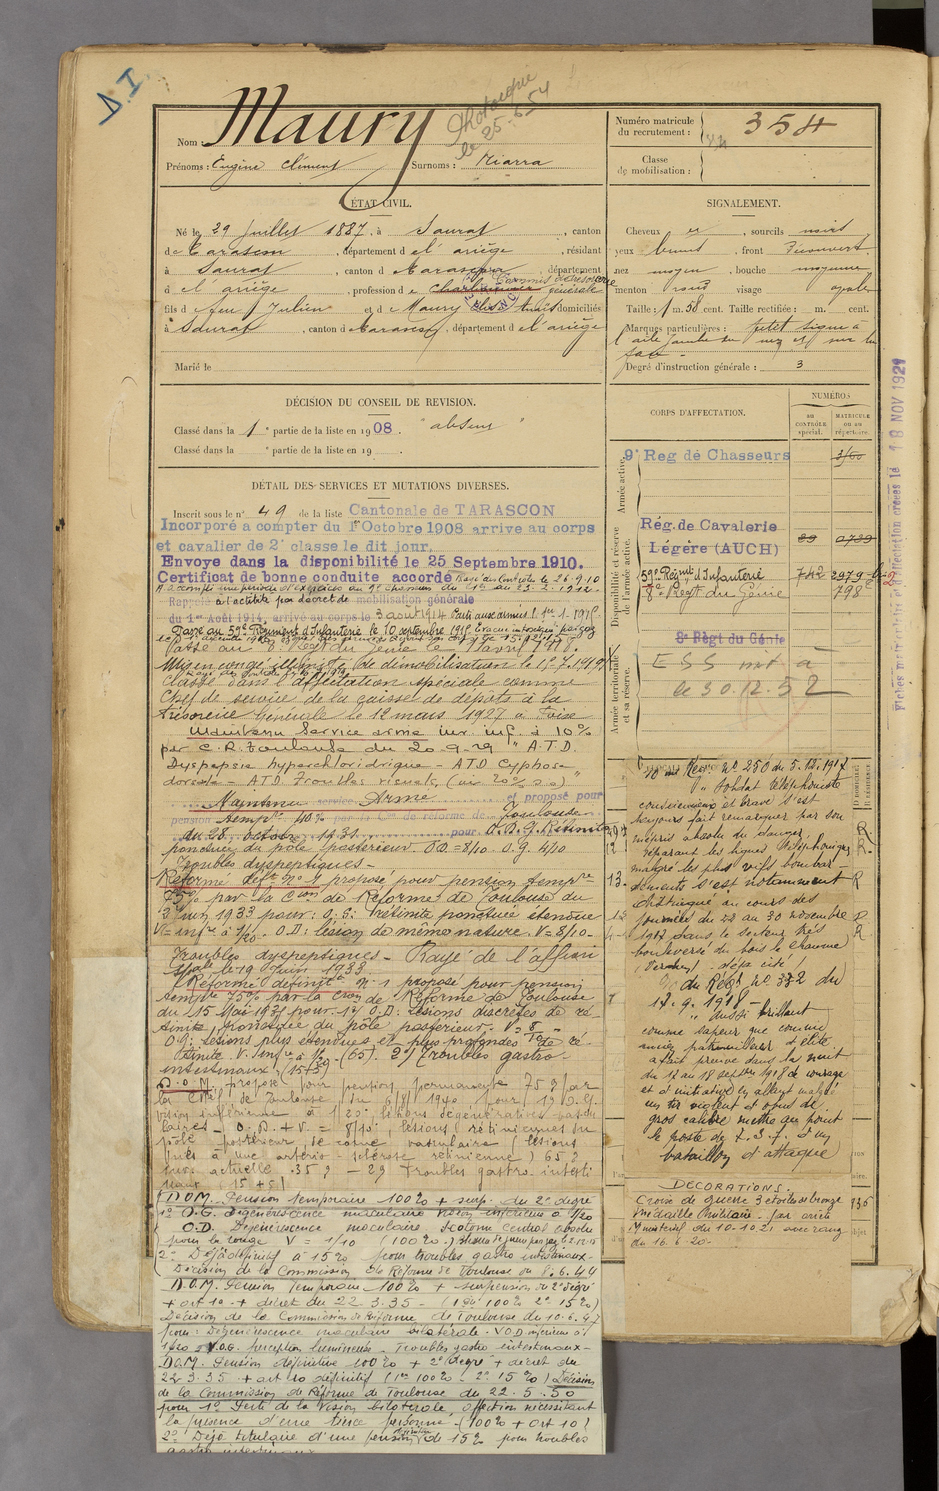 D.I.
Photocopie
le 25-6-54
Nom : Maury
Prénoms : Eugène Clément Surnoms : Miarra
Numéro matricule
du recrutement : 354
Classe
de mobilisation :
ÉTAT CIVIL.
Né le 29 Juillet 1887, à Saurat, canton
de Tarascon, département de l'ariège, résidant
à Saurat, canton de Tarascon, département
de l'ariège, profession de
générale
fils de feu Julien et de Maury domiciliés
à Saurat, canton de Tarascon, département de l'ariège
Marié le
SIGNALEMENT.
Cheveux , sourcils noirs
yeux bruns, front Découvert
nez moyen, bouche moyenne
menton rond visage ovale
Taille : 1 m. 58 cent. Taille rectifiée : m. cent.
Marques particulières : petit signe à
l'aile gauche du nez et sur la
face
Degré d'instruction générale : 3
DÉCISION DU CONSEIL DE REVISION.
Classé dans la 1 e partie de la liste en 1908. "absent"
Classé dans la e partie de la liste en 19
DÉTAIL DES SERVICES ET MUTATIONS DIVERSES.
Inscrit sous le n° 49 de la liste Cantonale de TARASCON
Incorporé a compter du 1er Octobre 1908 arrive au corps
et cavalier de 2e classe le dit jour.
Envoye dans la disponibilité le 25 Septembre 1910.
Certificat de bonne conduite accordé Rayé des Contrôles le 26.9.10
A accompli une période d'exercices au 9e Chasseurs du 1er au 23.2.1912.
Rappelé à l'activité par décret de mobilisation générale
du 1er Août 1914, arrivé au corps le 3 août 1914 Parti aux armées le 1-1-1915
Passé au 59e Régiment d'Infanterie le 10 septembre 1915
Passé au 8e Regt du Génie le 1 avril 1918.
Mis en congé illimité de démobilisation le 1.7.1919
Classé dans l'affectation spéciale comme
Chef de service de la caisse de dépôts à la
trésorerie Générale le 12 mars 1927 à Foix
Maintenu Service armé inv. inf. à 10%
par C.R. Toulouse du 20-9-29 "A.T.D.
Dyspepsie hyperchlorhydrique - ATD Cyphose
dorsale - ATD Troubles visuels (inv 20% S.O)"
Maintenu service Armé et proposé pour
pension tempre 40% par la Con de réforme de Toulouse
du 28 octobre 1931 pour O.D.G. Rétinite
ponctuée du pôle postérieur OD=8/10 O.G. 4/10
Troubles dyspeptiques -
Réformé deftf n° 1 proposé pour pension tempre
75% par la Con de Réforme de Toulouse du
2 juin 1933 pour : O.G. : rétinite ponctuée étendue
V = infre à 1/20 - O.D : lésion de même nature - V = 8/10 -
Troubles dyspeptiques - Rayé de l'affon
Spale le 19 Juin 1933
Réforme définitve n° 1 proposé pour pension
tempre 75% par la Con de Réforme de Toulouse
du 15 Mai 1935 pour 1°) O.D : Lésions discrètes de ré-
tinite ponctuée du pôle postérieur. V = 8/10
O.G : Lésions plus étendues et plus profondes de ré-
tinite. V. infre à 1/20 - (65) 2°) Troubles gastro-
intestinaux (15+5)
D.O.M. proposé pour pension permanente 75% par
la CR de Toulouse du 6/8/1940 pour 1°) O.G.
vision inférieure à 1/20, lésions dégénératives
O.D. V = 8/10, lésions rétiniennes du
pôle postérieur, lésions
dues à une artério-sclérose rétinienne) 65%
actuelle 35% - 2°) Troubles gastro intesti
naux 15+5)
D.O.M. Pension temporaire 100% + surp. du 2e degré
1° O.G. Dégénérescence maculaire vision inférieure à 1/20
O.D. Dégénérescence maculaire Scotome central absolu
pour le rouge V = 1/10 (100%)
2° Déjà définitif à 15% pour troubles gastro intestinaux-
Décision de la Commission de Réforme de Toulouse du 8.6.44
D.O.M. Pension temporaire 100% + suspension du 2e degré
+ art 10 + décret du 22.3.35 - (1° 100% 2° 15%)
Décision de la Commission de Réforme de Toulouse du 10.6.47
pour : Dégénérescence maculaire bilatérale. V.O.D inférieure à
1/20 - V.O.G. perception lumineuse - Troubles gastro intestinaux-
D.O.M. Pension définitive 100% + 2e degré + décret du
22.3.35 + art 10 définitif (1° 100% - 2° 15%) Décision
de la Commission de Réforme de Toulouse du 22.5.50
pour 1° Perte de la Vision bilatérale, affection nécessitant
la présence d'une tierce personne - (100% + art 10)
2° Déjà titulaire d'une pension définitive de 15% pour troubles
gastro intestinaux
CORPS D'AFFECTATION.
NUMÉROS
AU CONTRÔLE spécial.
MATRICULE ou au répertoire.
Armée active.
9e Reg de Chasseurs
Disponibilité et réserve de l'armée active.
Rég. de Cavalerie
Légère (AUCH)
59e Régimt d'Infanterie 742 2979
8e Regt du Génie 798
Armée territoriale et sa réserve.
8e Régt du Génie
ESS mit à
le 30.12.52
Fiches matriculaire et d'affectation créées le 18 NOV 1929
Regt N° 250 du 5.12.1917
"Soldat téléphoniste
consciencieux et brave s'est
toujours fait remarquer par son
mépris absolu du danger,
réparant les lignes téléphoniques
malgré les plus vifs bombar-
dements s'est notamment
distingué au cours des
journées du 22 au 30 novembre
1917 dans le secteur très
bouleversé du bois le chaume
(Verdun) - déjà cité"
du Régt N° 332 du
17.9.1918 -
"aussi brillant
comme sapeur que comme
ancien patrouilleur d'élite
a fait preuve dans la nuit
du 17 au 18 septbre 1918 de courage
et d'initiative en allant malgré
un tir violent et obus de
gros calibre mettre au point
le poste de T.S.F. d'un
bataillon d'attaque"
DECORATIONS.
Croix de guerre 3 étoiles de bronze
Médaille Militaire - par arrêté
Ministériel du 10-10-21 avec rang
du 16.6.20-